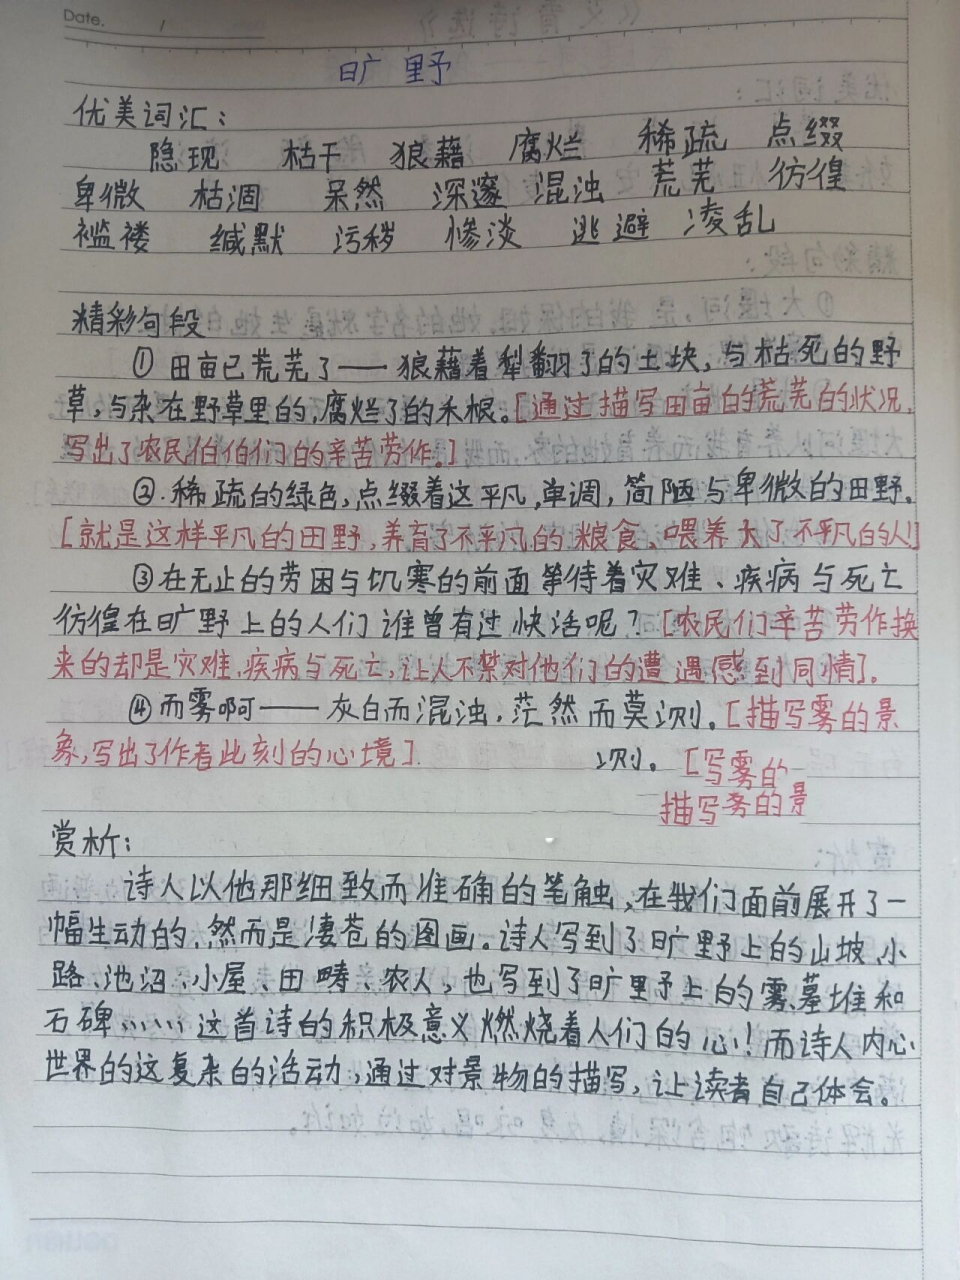 Date.
旷野
优美词汇：
隐现 枯干 狼藉 腐烂 稀疏 点缀
卑微 枯涸 呆然 深邃 混浊 荒芜 彷徨
褴褛 缄默 污秽 惨淡 逃避 凌乱
精彩句段
① 田亩已荒芜了——狼藉着犁翻了的土块，与枯死的野
草，与杂在野草里的，腐烂了的禾根。[通过描写田亩的荒芜的状况，
写出了农民伯伯们的辛苦劳作。]
②.稀疏的绿色，点缀着这平凡，单调，简陋与卑微的田野。
[就是这样平凡的田野，养育了不平凡的粮食、喂养大了不平凡的人!]
③在无止的劳困与饥寒的前面等待着灾难、疾病与死亡
彷徨在旷野上的人们谁曾有过快活呢？[农民们辛苦劳作换
来的却是灾难、疾病与死亡，让人不禁对他们的遭遇感到同情].
④而雾啊——灰白而混浊，茫然而莫测。[描写雾的景
象，写出了作者此刻的心境].
测。[写雾的
描写雾的景
赏析：
诗人以他那细致而准确的笔触，在我们面前展开了一
幅生动的、然而是凄苍的图画。诗人写到了旷野上的山坡、小
路、池沼、小屋、田畴、农人，也写到了旷野上的雾、墓堆和
石碑……这首诗的积极意义燃烧着人们的心！而诗人内心
世界的这复杂的活动，通过对景物的描写，让读者自己体会。